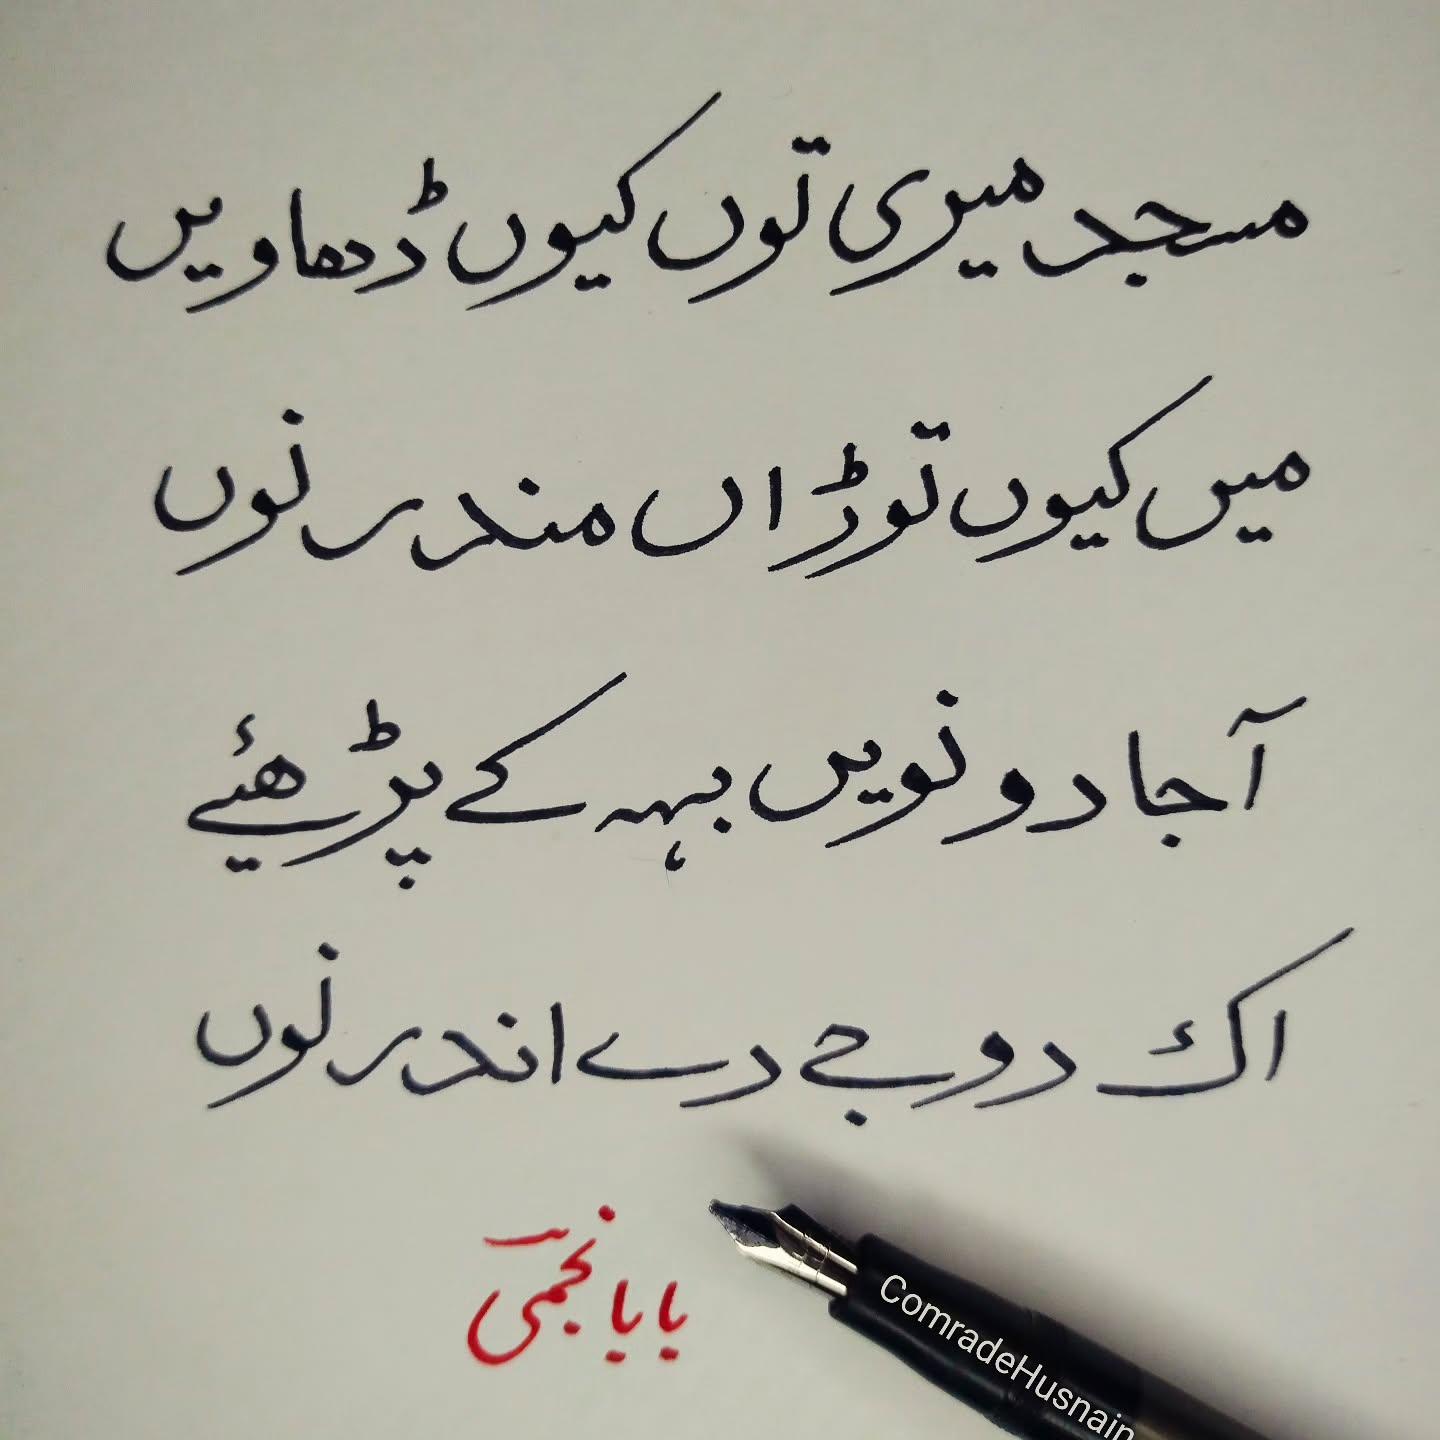 مسجد میری توں کیوں ڈھاویں
میں کیوں توڑاں مندر نوں
آجا دونویں بہہ کے پڑھئیے
اک دوجے دے اندر نوں
بابا نجمی
ComradeHusnain